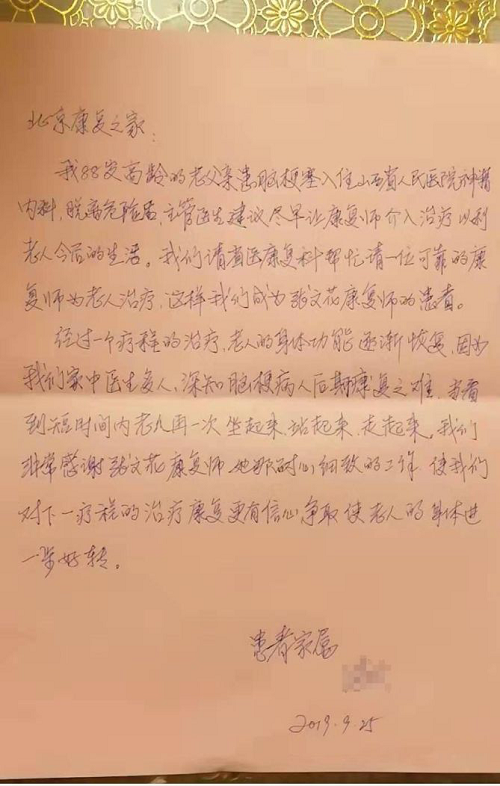 北京康复之家:
我88岁高龄的老父亲患脑梗塞入住山西省人民医院神精
内科,脱离危险后,主管医生建议尽早让康复师介入治疗以利
老人今后的生活。我们请省医康复科帮忙请一位可靠的康
复师为老人治疗,这样我们成为张文花康复师的患者。
经过一个疗程的治疗,老人的身体功能逐渐恢复,因为
我们家中医生多人,深知脑梗病人后期康复之难,当看
到短时间内老人再一次坐起来,站起来,走起来,我们
非常感谢张文花康复师,她那耐心细致的工作,使我们
对下一疗程的治疗康复更有信心争取使老人的身体进
一步好转。
患者家属
2019.9.25